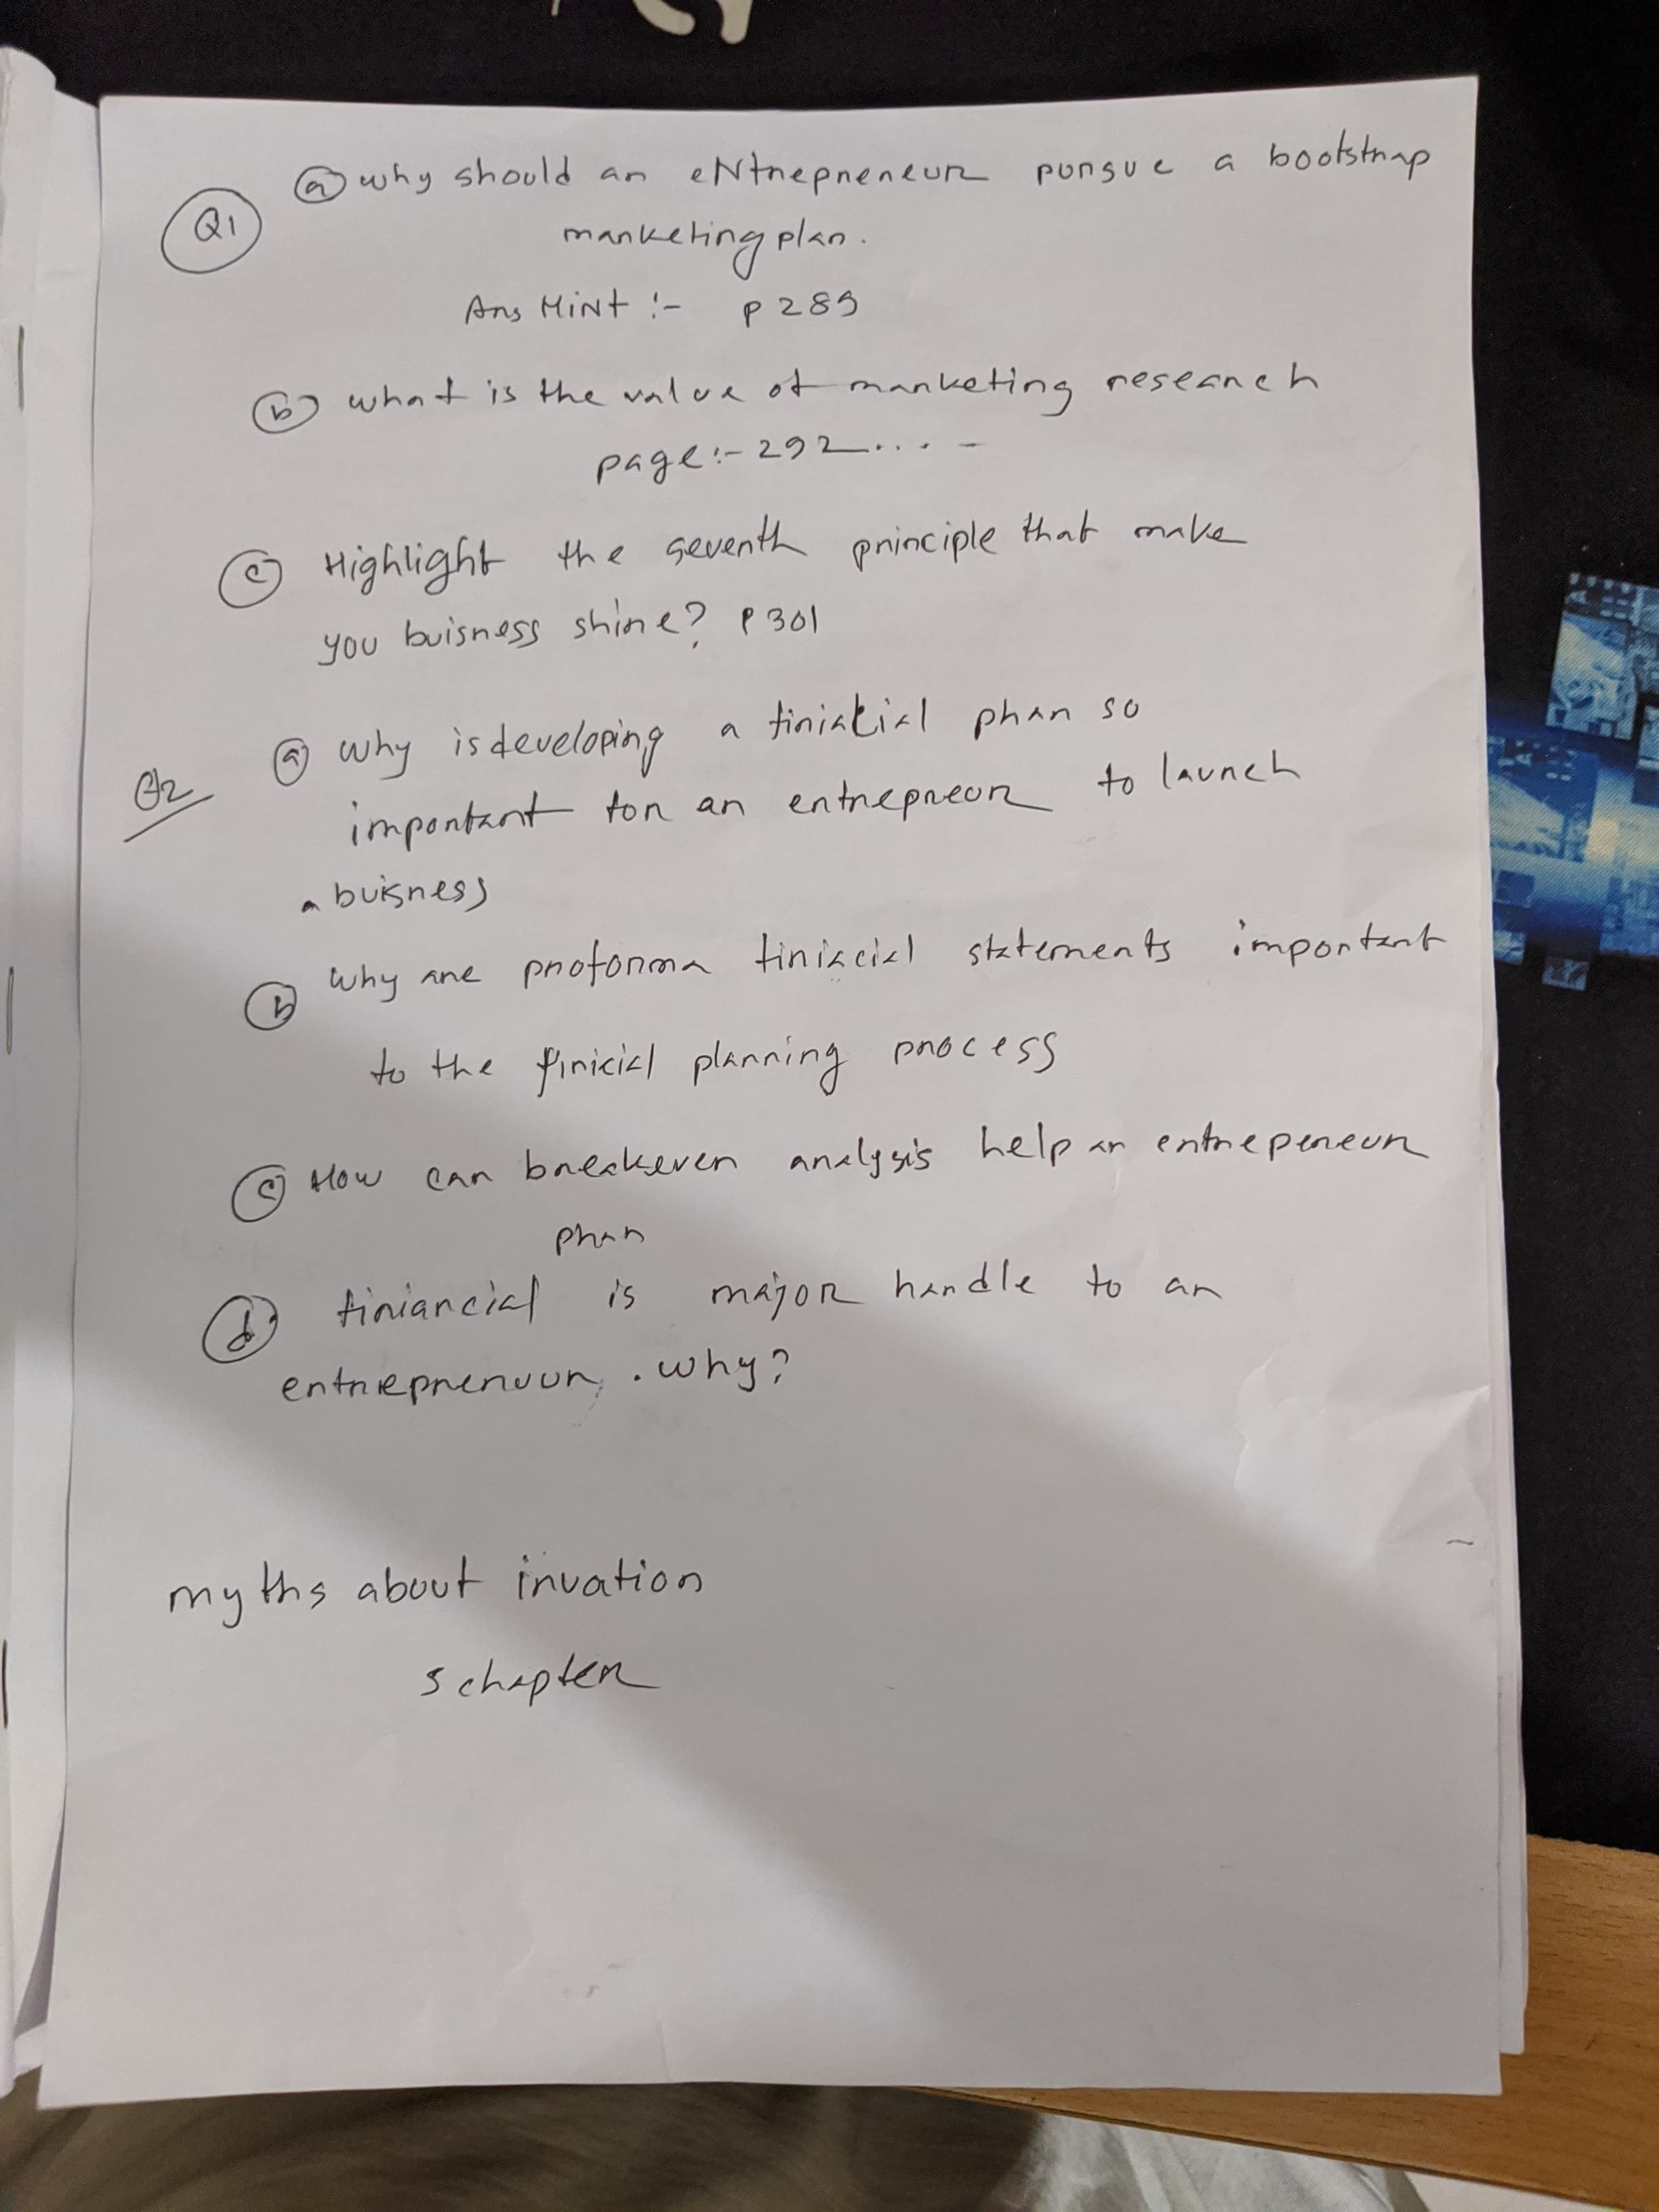 Q1 a why should an eNtrepreneur pursue a bootstrap
marketing plan.
Ans HiNt :- P 289
b what is the value of marketing research
page:- 292.... -
c Highlight the seventh principle that make
you buisness shine? P 301
Q2 a why is developing a finiatial phan so
important for an entrepreor to launch
a buisness
b why are proforma finiacial statements important
to the finicial planning process
c How can breakeven analysis help an entrepeneur
phan
d finiancial is major handle to an
entrieprenuur . why?
myths about invation
5 chapter